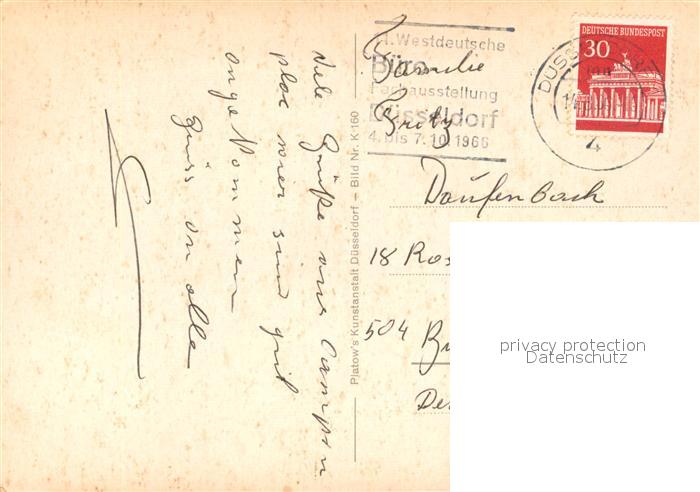 Viele Grüße aus Campin
plac wier sind gut
angekommen
Grüss an alle
Platow's Kunstanstalt Düsseldorf – Bild Nr. K 160
1. Westdeutsche
Büro
Fachausstellung
Düsseldorf
4. bis 7.10.1966
DEUTSCHE BUNDESPOST
30
DÜSS
4
Familie
Fritz
Daufenbach
18 Ros
504 Brü
privacy protection
Datenschutz